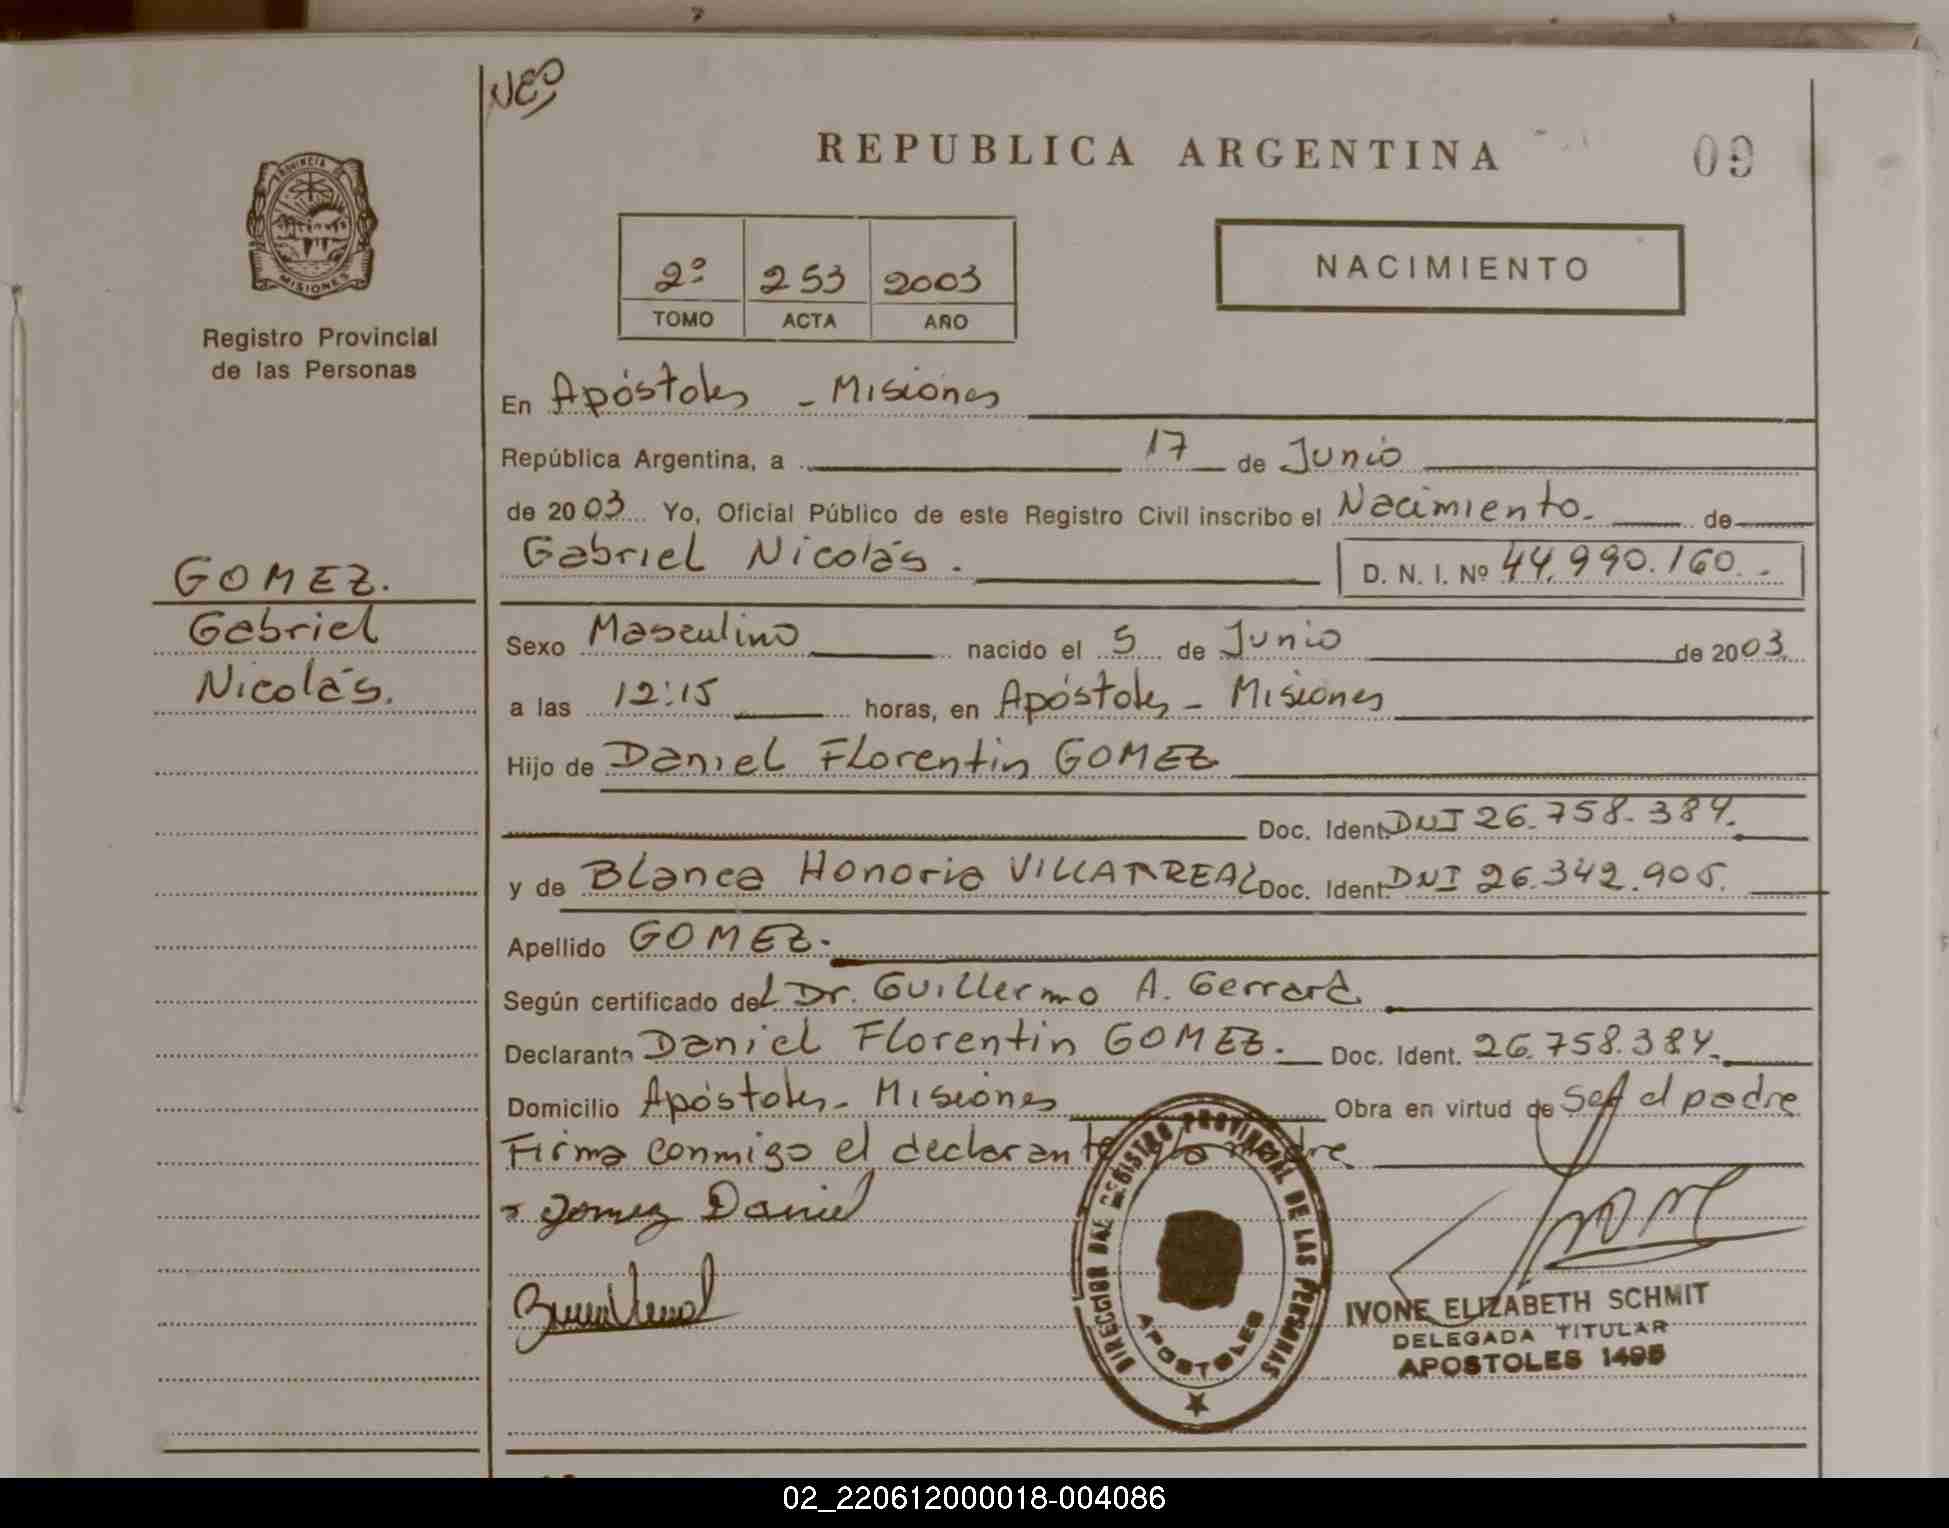 NEO
REPUBLICA ARGENTINA
09
PROVINCIA DE
MISIONES
Registro Provincial
de las Personas
2º 253 2003
TOMO ACTA AÑO
NACIMIENTO
En Apóstoles - Misiones
República Argentina, a 17 de Junio
de 2003 Yo, Oficial Público de este Registro Civil inscribo el Nacimiento. de
Gabriel Nicolás. D. N. I. Nº 44.990.160.-
GOMEZ.
Gabriel
Nicolás.
Sexo Masculino nacido el 5 de Junio de 2003
a las 12:15 horas, en Apóstoles - Misiones
Hijo de Daniel Florentin GOMEZ
Doc. Ident. DNI 26.758.384.
y de Blanca Honoria VILLARREAL Doc. Ident. DNI 26.342.905.
Apellido GOMEZ.
Según certificado del Dr. Guillermo A. Gerrard
Declarante Daniel Florentin GOMEZ. Doc. Ident. 26.758.384.
Domicilio Apóstoles - Misiones Obra en virtud de ser el padre
Firma conmigo el declarante y la madre
Gomez Daniel
DIRECCION DAL REGISTRO PROVINCIAL DE LAS PERSONAS
APOSTOLES
IVONE ELIZABETH SCHMIT
DELEGADA TITULAR
APOSTOLES 1495
02_220612000018-004086